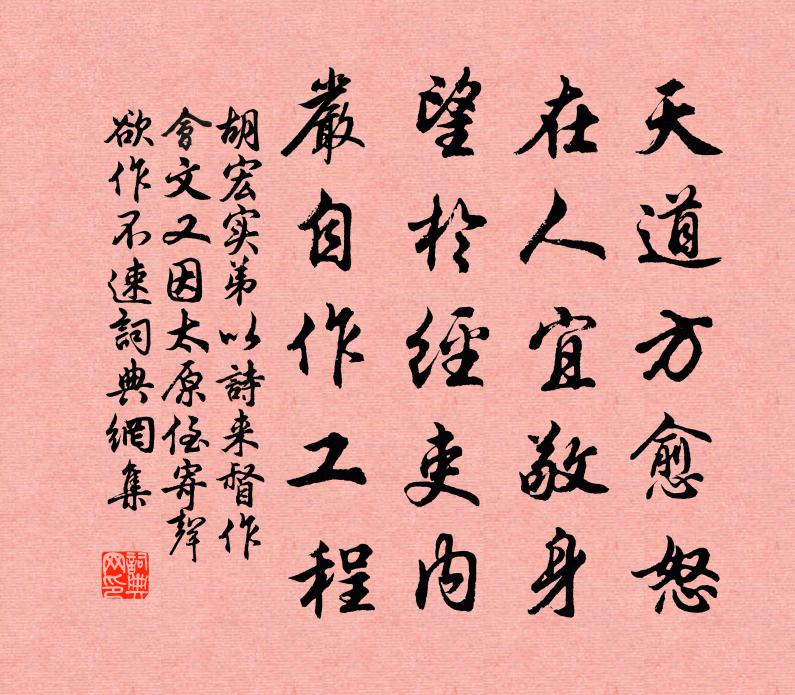 天道方愈怒
在人宜敬身
望於經吏内
嚴自作工程
胡宏实弟以詩来督作
會文又因太原侄寄聲
欲作不速詞典網集
詞典網印